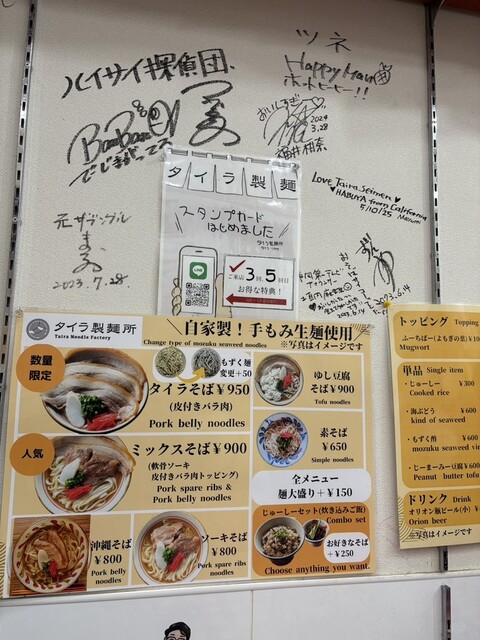 ハイサイ探偵団.
BanBan
でじまがってる
ツネ
Happy Man
ホットヒーヒー!!
おいしすぎ
2024
3.28
Love Taira Seimen
HABUYA from California
5/10/25
元ザ・テンプル
2023.7.28.
2023.6.14
タイラ製麺
スタンプカード
はじめました
LINE
ご来店
3回、5回目
お得な特典!
タイラ製麺所
Taira Noodle Factory
自家製!手もみ生麺使用
Change type of mozuku seaweed noodles
※写真はイメージです
もずく麺
変更+50
数量
限定
タイラそば¥950
(皮付きバラ肉)
Pork belly noodles
人気
ミックスそば¥900
(軟骨ソーキ
皮付きバラ肉トッピング)
Pork spare ribs &
Pork belly noodles
沖縄そば
¥800
Pork belly
noodles
ソーキそば
¥800
Pork spare ribs
noodles
ゆし豆腐
そば¥900
Tofu noodles
素そば
¥650
Simple noodles
全メニュー
麺大盛り+¥150
じゅーしーセット(炊き込みご飯)
Combo set
お好きなそば
+¥250
Choose anything you want.
トッピング Topping
ふーちばー(よもぎの葉)¥10
Mugwort
単品 Single item
・じゅーしー ¥300
Cooked rice
・海ぶどう ¥600
kind of seaweed
・もずく酢 ¥
mozuku seaweed vin
・じーまみー豆腐¥600
Peanut butter tofu
ドリンク Drink
オリオン瓶ビール(小) ¥
Orion beer
※写真はイメージです